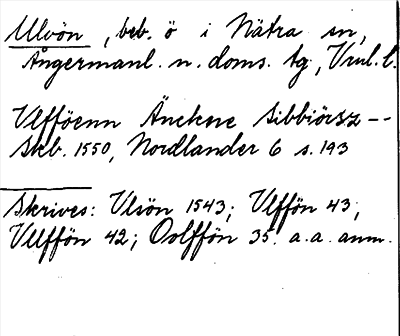 Ulvön, beb. ö i Nätra sn,
Ångermanl. n. doms. tg, Vnrl. l.
Vlfföenn Änckne Sibbiörsz --
Skb. 1550, Nordlander 6 s. 193
Skrives: Vlsön 1543; Vlffön 43;
Vllffön 42; Oolffön 35. a.a. anm.